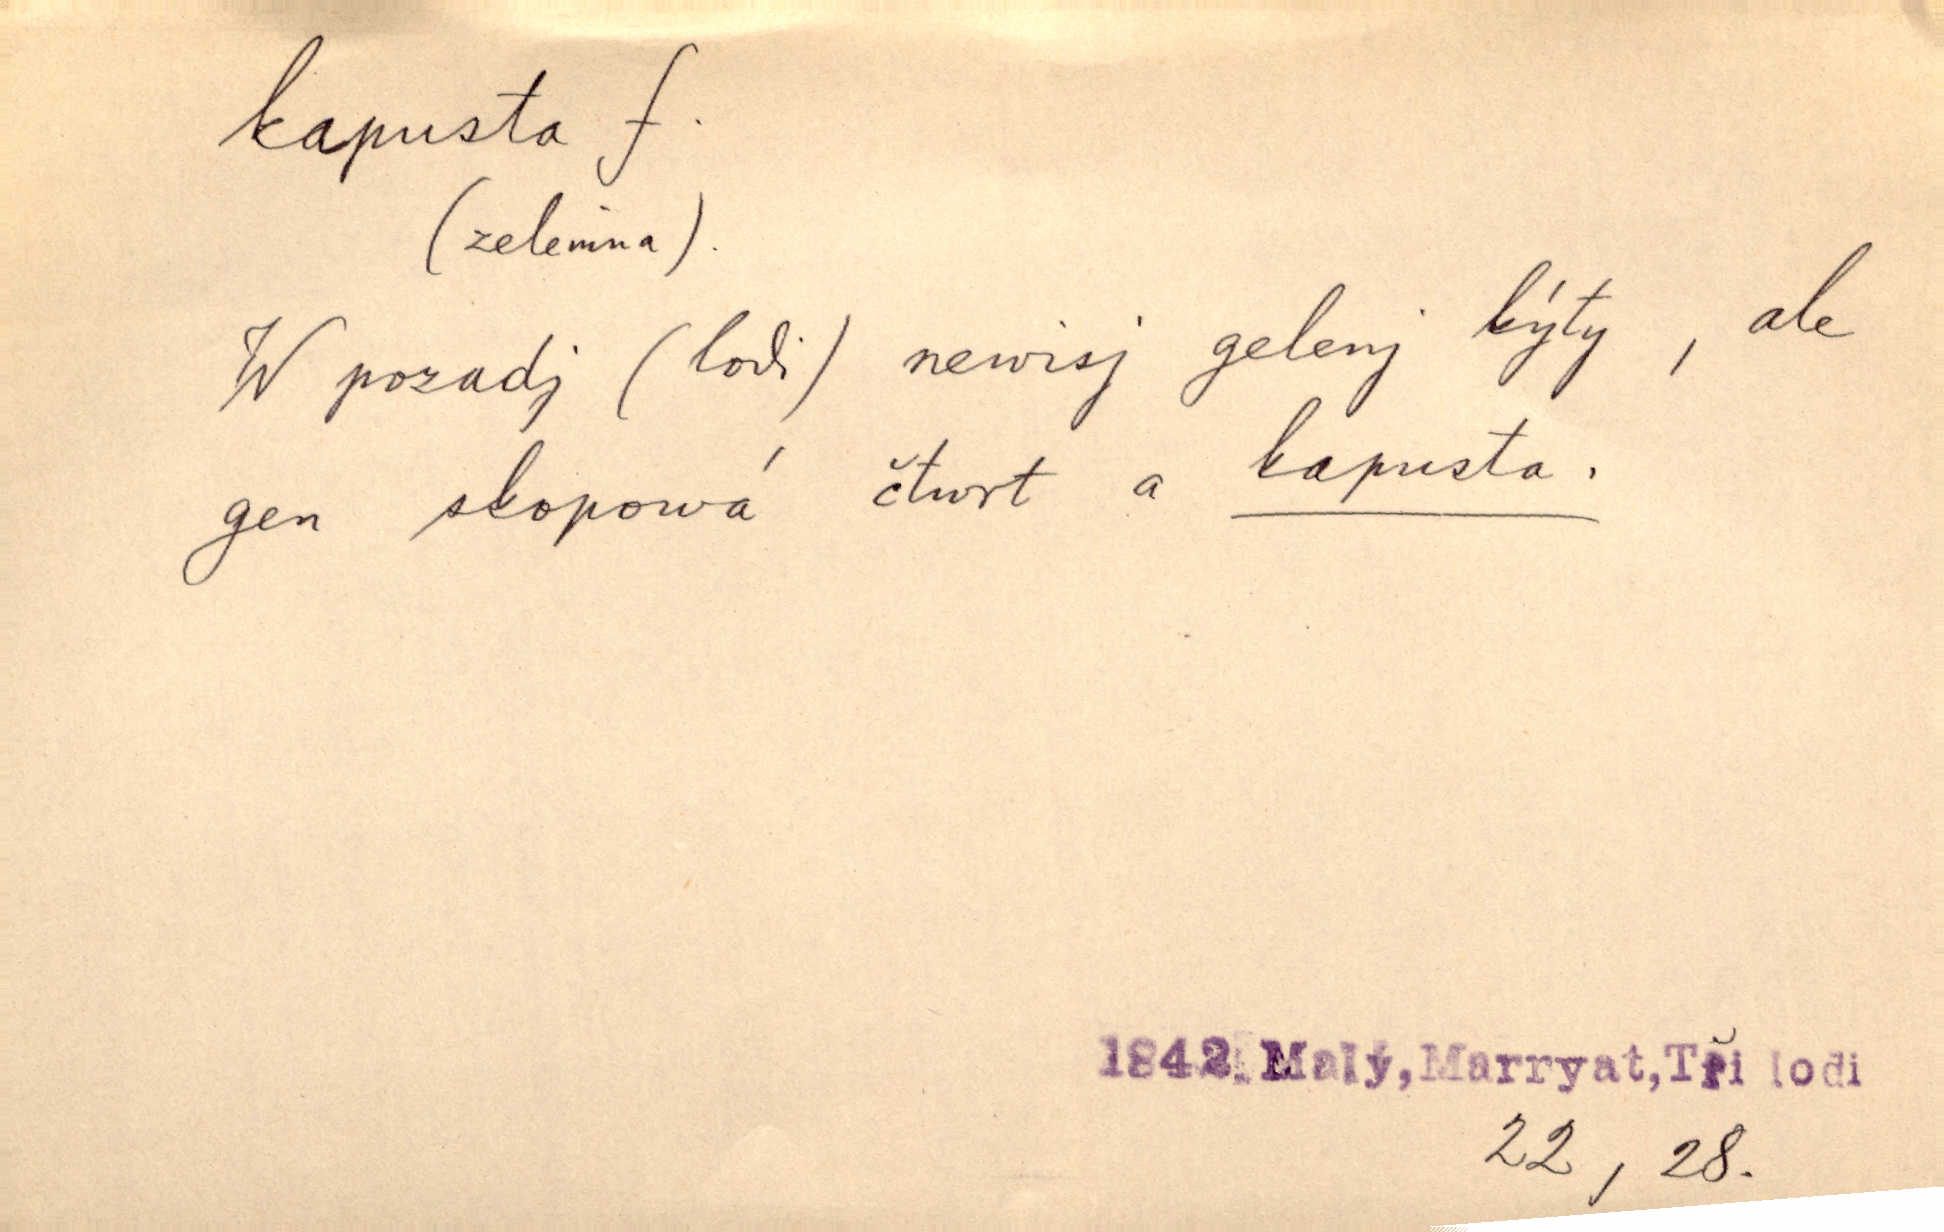 kapusta f.
(zelenina).
W pozadj (lodi) newisj gelenj kýty, ale
gen skopowá čtwrt a kapusta.
1842 Malý, Marryat, Tři lodi
22, 28.